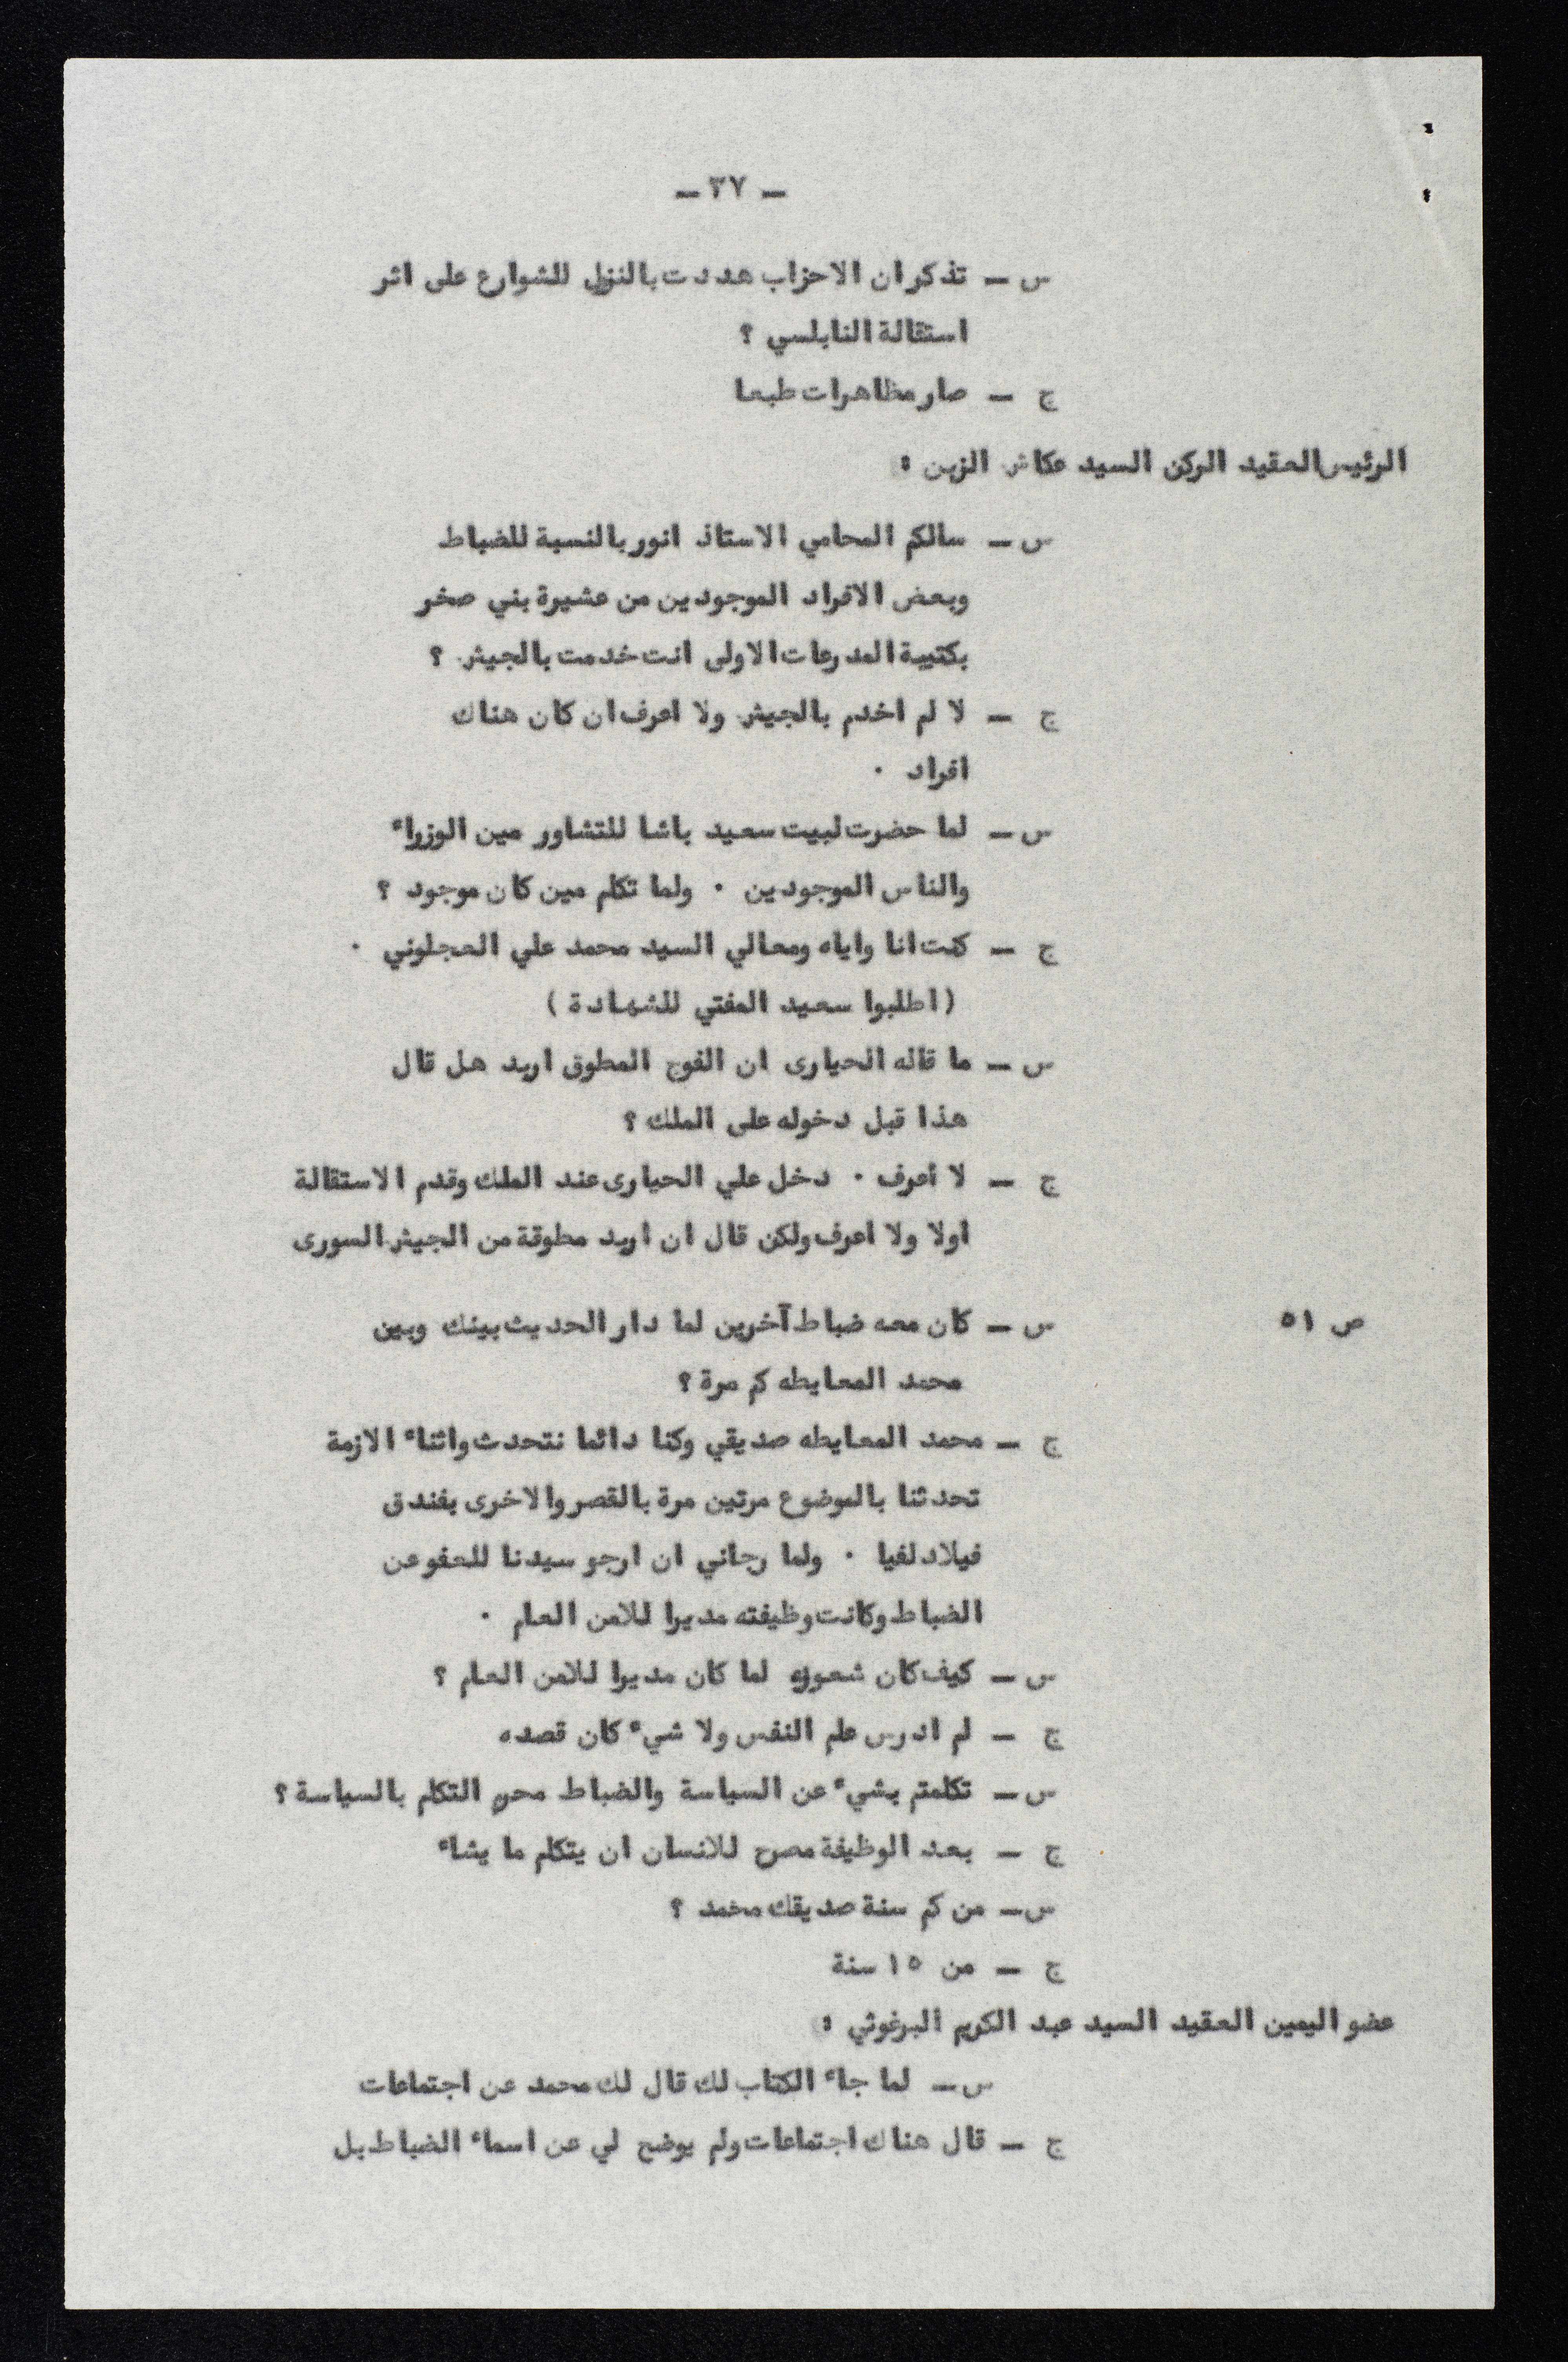 ـ ٣٧ ـ
س ـ تذكر ان الاحزاب هددت بالنزول للشوارع على اثر
استقالة النابلسي ؟
ج ـ صار مظاهرات طبعا
الرئيس العقيد الركن السيد عكاش الزبن :
س ـ سالكم المحامي الاستاذ انور بالنسبة للضباط
وبعض الافراد الموجودين من عشيرة بني صخر
بكتيبة المدرعات الاولى انت خدمت بالجيش ؟
ج ـ لا لم اخدم بالجيش ولا اعرف ان كان هناك
افراد ٠
س ـ لما حضرت لبيت سعيد باشا للتشاور مين الوزراء
والناس الموجودين ٠ ولما تكلم مين كان موجود ؟
ج ـ كنت انا واياه ومعالي السيد محمد علي العجلوني ٠
( اطلبوا سعيد المفتي للشهادة )
س ـ ما قاله الحيارى ان الفوج المطوق اربد هل قال
هذا قبل دخوله على الملك ؟
ج ـ لا أعرف ٠ دخل علي الحيارى عند الملك وقدم الاستقالة
اولا ولا اعرف ولكن قال ان اربد مطوقة من الجيش السورى
ص ٥١ س ـ كان معه ضباط آخرين لما دار الحديث بينك وبين
محمد المعايطه كم مرة ؟
ج ـ محمد المعايطه صديقي وكنا دائما نتحدث واثناء الازمة
تحدثنا بالموضوع مرتين مرة بالقصر والاخرى بفندق
فيلادلفيا ٠ ولما رجاني ان ارجو سيدنا للعفو عن
الضباط وكانت وظيفته مديرا للامن العام ٠
س ـ كيف كان شعوره لما كان مديرا للامن العام ؟
ج ـ لم ادرس علم النفس ولا شيء كان قصده
س ـ تكلمتم بشيء عن السياسة والضباط محرم التكلم بالسياسة ؟
ج ـ بعد الوظيفة مصرح للانسان ان يتكلم ما يشاء
س ـ من كم سنة صديقك محمد ؟
ج ـ من ١٥ سنة
عضو اليمين العقيد السيد عبد الكريم البرغوثي :
س ـ لما جاء الكتاب لك قال لك محمد عن اجتماعات
ج ـ قال هناك اجتماعات ولم يوضح لي عن اسماء الضباط بل